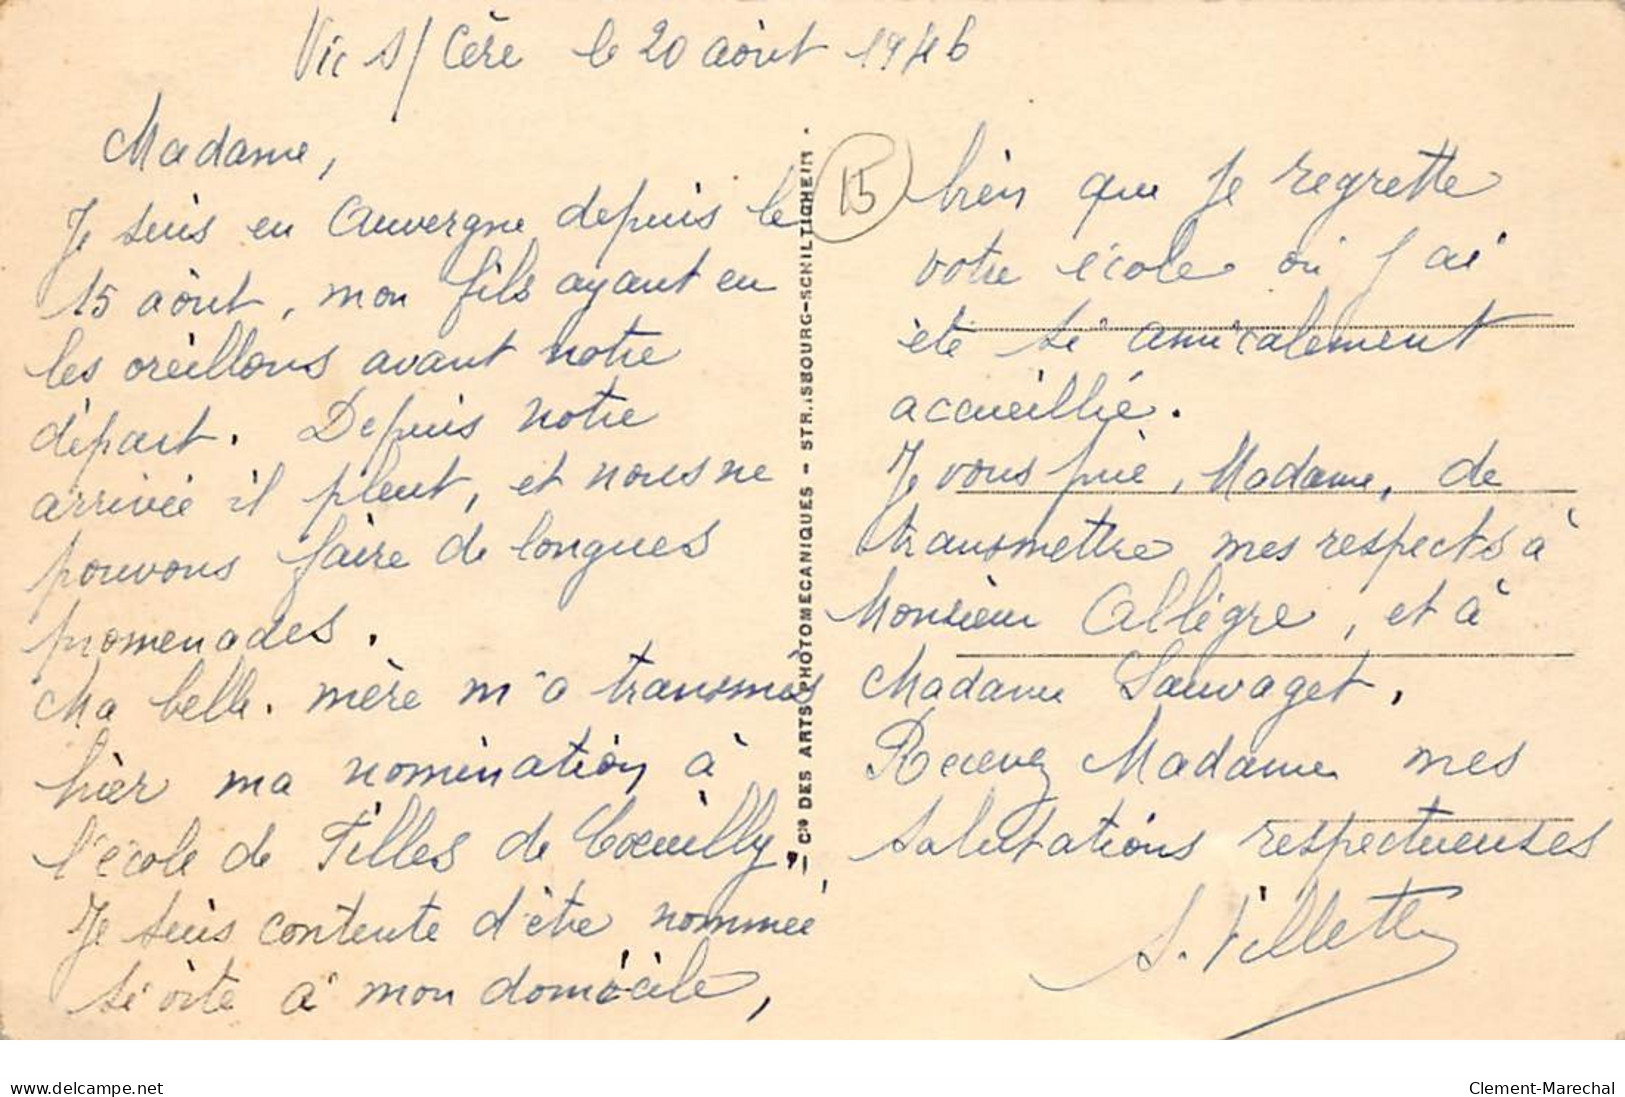 Vic s/ Cère le 20 août 1946
Madame,
Je suis en Auvergne depuis le
15 août, mon fils ayant eu
les oreillons avant notre
départ. Depuis notre
arrivée il pleut, et nous ne
pouvons faire de longues
promenades.
Ma belle-mère m'a transmis
hier ma nomination à
l'école de Filles de Cœuilly,
Je suis contente d'être nommée
si vite à mon domicile,
- Cie DES ARTS PHOTOMECANIQUES - STRASBOURG-SCHILTIGHEIM -
15
bien que je regrette
votre école où j'ai
été si amicalement
accueillie.
Je vous prie, Madame, de
transmettre mes respects à
Monsieur Allègre, et à
Madame Sauvaget.
Recevez Madame mes
salutations respectueuses
S. Villette
www.delcampe.net
Clement-Marechal